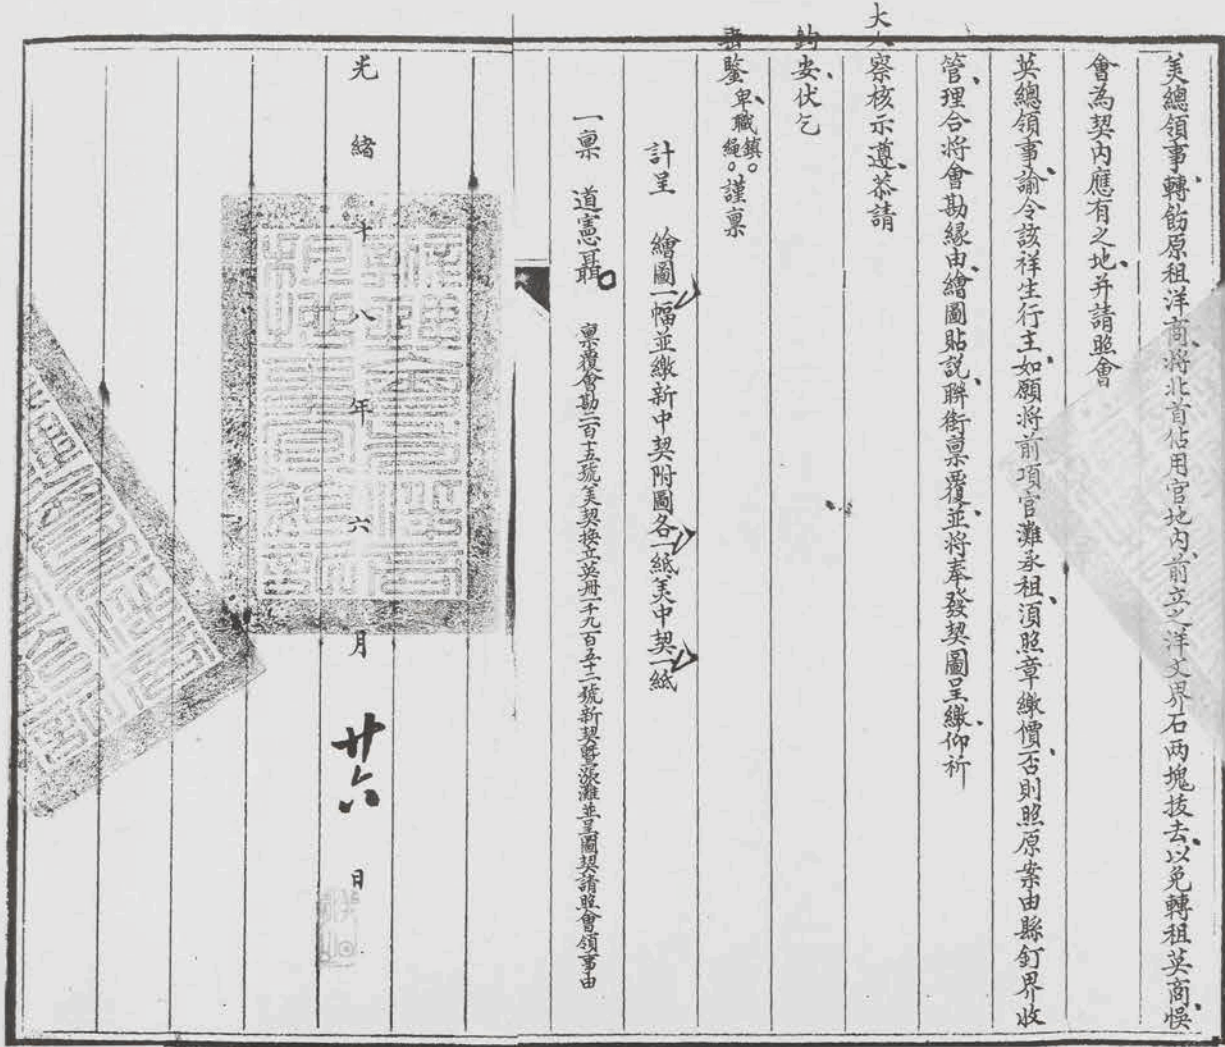 美總領事轉飭原租洋商將北首佔用官地內前立之洋文界石两塊拔去以免轉租英商悞
會為契內應有之地并請照會
英總領事諭令該祥生行主如願將前項官灘承租須照章繳價否則照原案由縣釘界收
管理合將會勘緣由繪圖貼説聯銜稟覆並將奉發契圖呈繳仰祈
大人察核示遵恭請
鈞安伏乞
垂鑒卑職鎮繩謹稟
計呈 繪圖一幅並繳新中契附圖各一紙美中契一紙
一稟 道憲聶 稟覆會勘二百十五號美契換立英册一千九百五十二號新契暨漲灘並呈圖契請照會領事由
光緒十八年六月廿六日